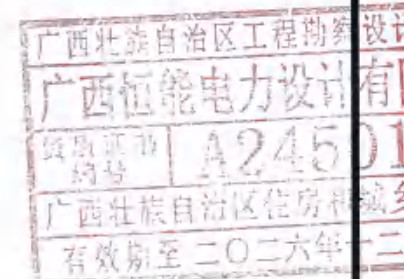 广西壮族自治区工程勘察设计
广西恒能电力设计有
资质证书
编号
A24501
广西壮族自治区住房和城乡
有效期至二〇二六年十二